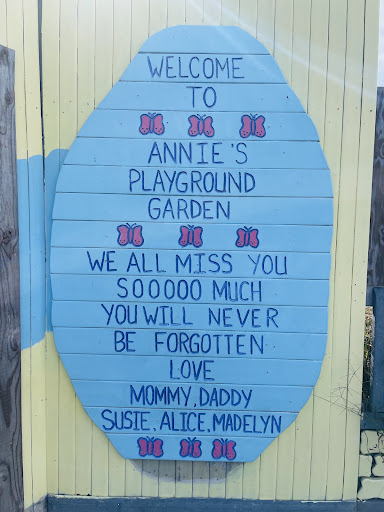 WELCOME
TO
ANNIE'S
PLAYGROUND
GARDEN
WE ALL MISS YOU
SOOOOO MUCH
YOU WILL NEVER
BE FORGOTTEN
LOVE
MOMMY, DADDY
SUSIE, ALICE, MADELYN